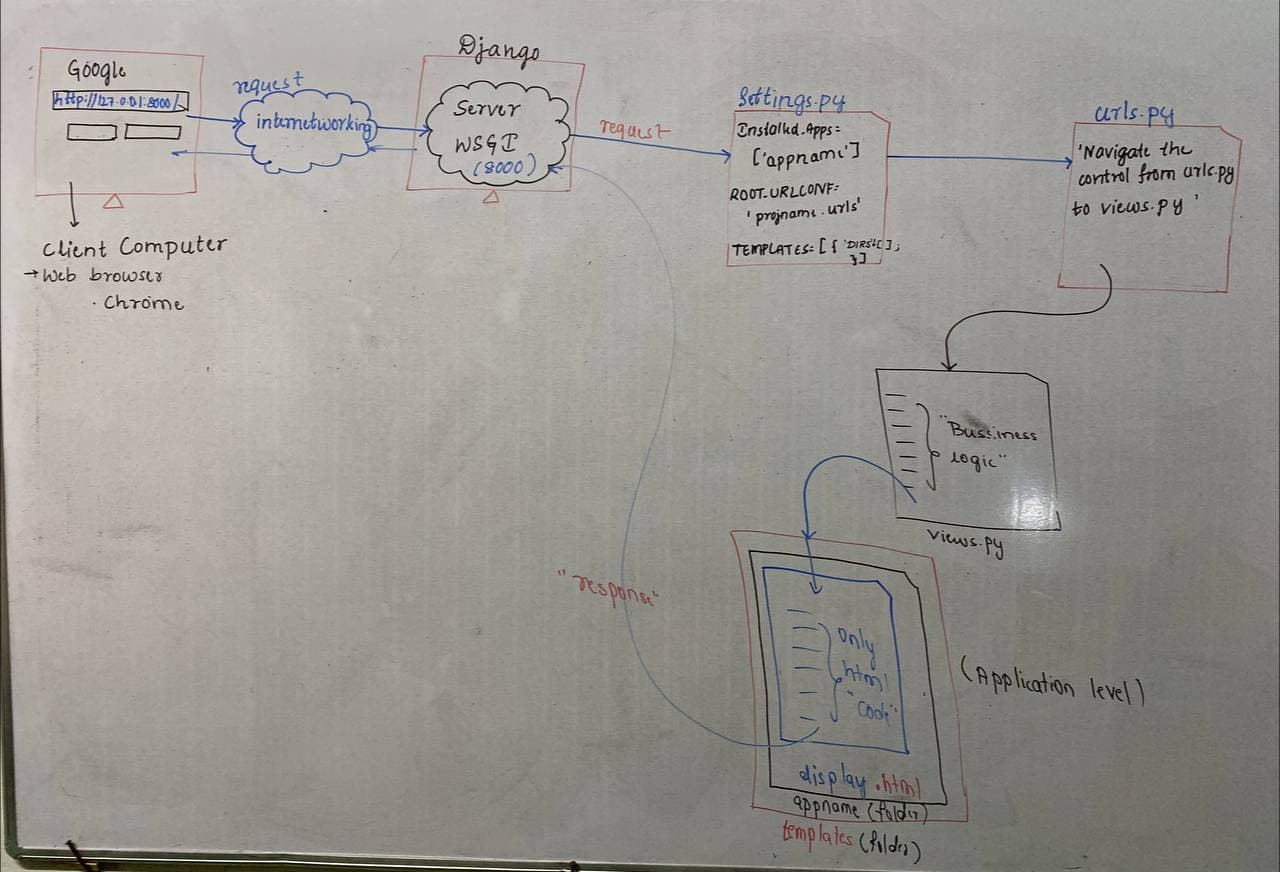 Google
http://127.0.0.1:8000/
Client Computer
→ Web browser
. Chrome
request
internetworking
Django
Server
WSGI
(8000)
request
Settings.py
Installed.Apps=
['appname']
ROOT_URLCONF=
'projname.urls'
TEMPLATES=[{'DIRS':[],
}]
urls.py
'Navigate the
control from urls.py
to views.py'
"Bussiness
logic"
views.py
"response"
Only
html
"Code"
display.html
appname (folder)
templates (folder)
(Application level)